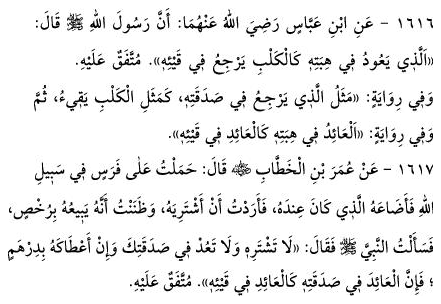 ١٦١٦ - عَنِ ابْنِ عَبَّاسٍ رَضِيَ اللهُ عَنْهُمَا: أَنَّ رَسُولَ اللهِ ﷺ قَالَ:
«اَلَّذِي يَعُودُ فِي هِبَتِهِ كَالْكَلْبِ يَرْجِعُ فِي قَيْئِهِ». مُتَّفَقٌ عَلَيْهِ.
وَفِي رِوَايَةٍ: «مَثَلُ الَّذِي يَرْجِعُ فِي صَدَقَتِهِ، كَمَثَلِ الْكَلْبِ يَقِيءُ، ثُمَّ
وَفِي رِوَايَةٍ: «اَلْعَائِدُ فِي هِبَتِهِ كَالْعَائِدِ فِي قَيْئِهِ».
١٦١٧ - عَنْ عُمَرَ بْنِ الْخَطَّابِ ﷺ قَالَ: حَمَلْتُ عَلٰى فَرَسٍ فِي سَبِيلِ
اللهِ فَأَضَاعَهُ الَّذِي كَانَ عِنْدَهُ، فَأَرَدْتُ أَنْ أَشْتَرِيَهُ، وَظَنَنْتُ أَنَّهُ يَبِيعُهُ بِرُخْصٍ،
فَسَأَلْتُ النَّبِيَّ ﷺ فَقَالَ: «لَا تَشْتَرِهِ وَلَا تَعُدْ فِي صَدَقَتِكَ وَإِنْ أَعْطَاكَهُ بِدِرْهَمٍ
؛ فَإِنَّ الْعَائِدَ فِي صَدَقَتِهِ كَالْعَائِدِ فِي قَيْئِهِ». مُتَّفَقٌ عَلَيْهِ.